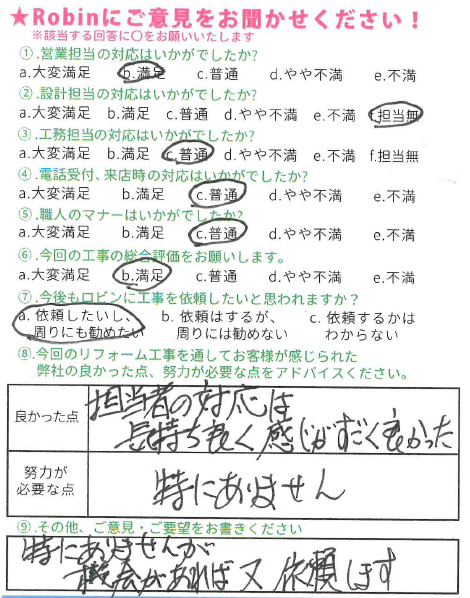 ★Robinにご意見をお聞かせください！
※該当する回答に○をお願いいたします
①.営業担当の対応はいかがでしたか?
a.大変満足 b.満足 c.普通 d.やや不満 e.不満
②.設計担当の対応はいかがでしたか?
a.大変満足 b.満足 c.普通 d.やや不満 e.不満 f.担当無
③.工務担当の対応はいかがでしたか?
a.大変満足 b.満足 c.普通 d.やや不満 e.不満 f.担当無
④.電話受付、来店時の対応はいかがでしたか?
a.大変満足 b.満足 c.普通 d.やや不満 e.不満
⑤.職人のマナーはいかがでしたか?
a.大変満足 b.満足 c.普通 d.やや不満 e.不満
⑥.今回の工事の総合評価をお願いします。
a.大変満足 b.満足 c.普通 d.やや不満 e.不満
⑦.今後もロビンに工事を依頼したいと思われますか?
a. 依頼したいし、 b. 依頼はするが、 c. 依頼するかは
周りにも勧めたい 周りには勧めない わからない
⑧.今回のリフォーム工事を通してお客様が感じられた
弊社の良かった点、努力が必要な点をアドバイスください。
良かった点
担当者の対応は
持ち良く感じがすごく良かった
努力が
必要な点
特にありません
⑨.その他、ご意見・ご要望をお書きください
特にありませんが
機会があれば又依頼します